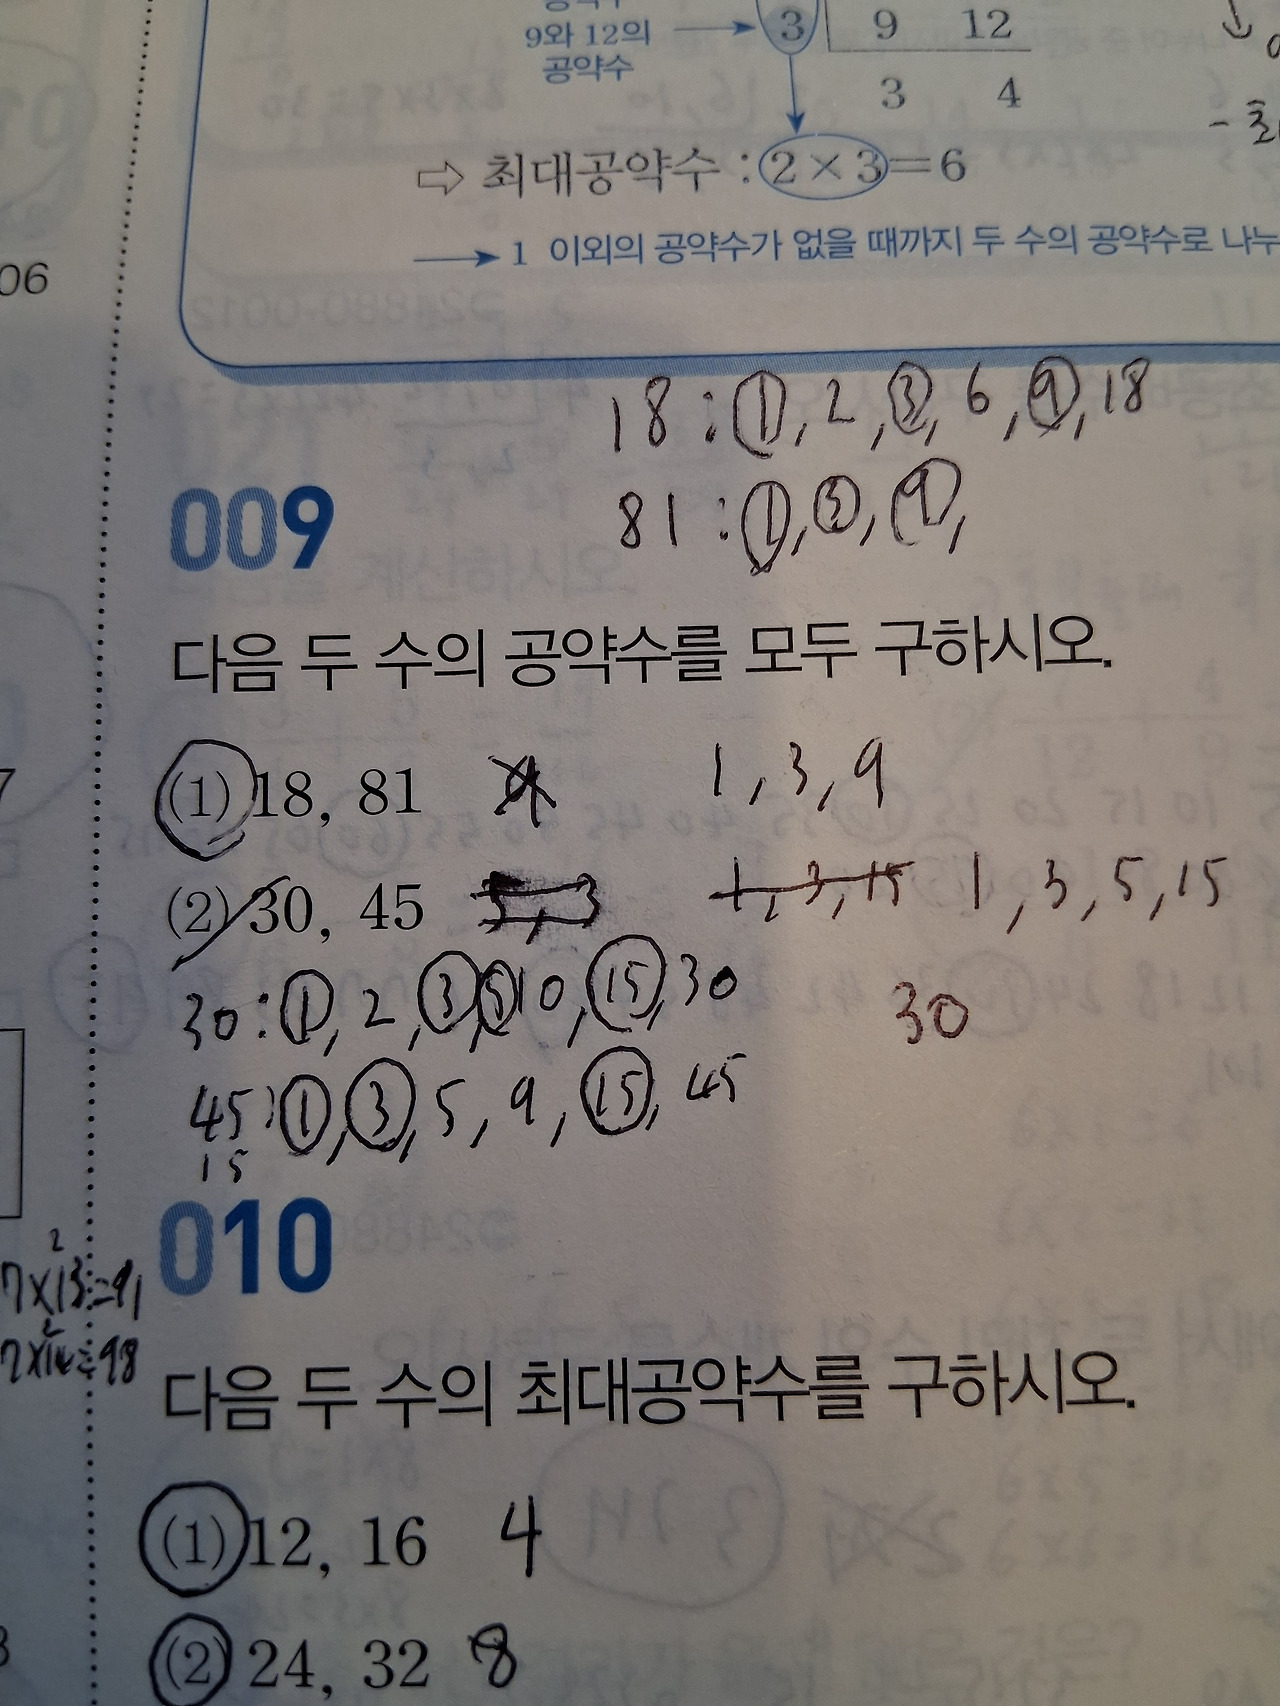 9와 12의
공약수
3 9 12
3 4
⇨ 최대공약수 : 2 × 3 = 6
→ 1 이외의 공약수가 없을 때까지 두 수의 공약수로 나누
06
18 : 1, 2, 3, 6, 9, 18
81 : 1, 3, 9,
009
다음 두 수의 공약수를 모두 구하시오.
(1) 18, 81 1, 3, 9
(2) 30, 45 5, 3 1, 3, 15 1, 3, 5, 15
30 : 1, 2, 3, 5 10, 15, 30
30
45 : 1, 3, 5, 9, 15, 45
15
010
2
7×13=91
7×14=98
다음 두 수의 최대공약수를 구하시오.
(1) 12, 16 4
(2) 24, 32 8